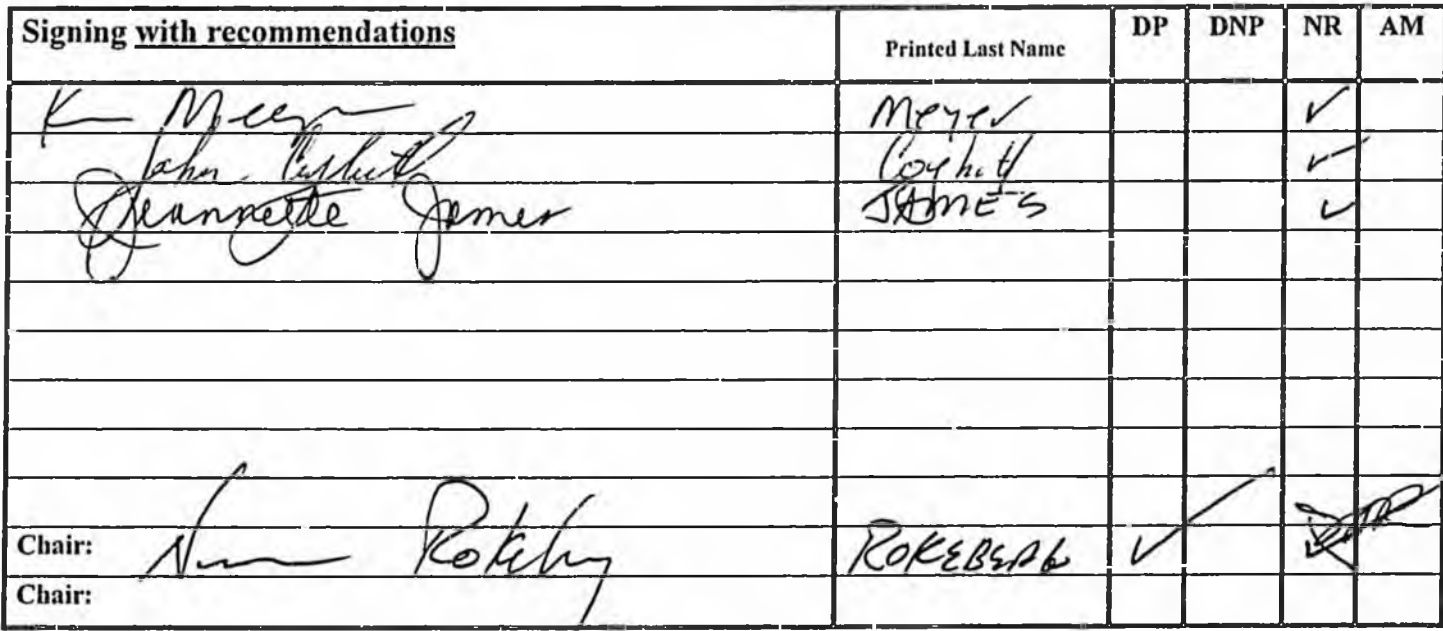 Signing with recommendations Printed Last Name DP DNP NR AM
K Meyer Meyer ✓
John ✓
Jeannette James JAMES ✓
Chair: Rokeberg ROKEBERG ✓
Chair: